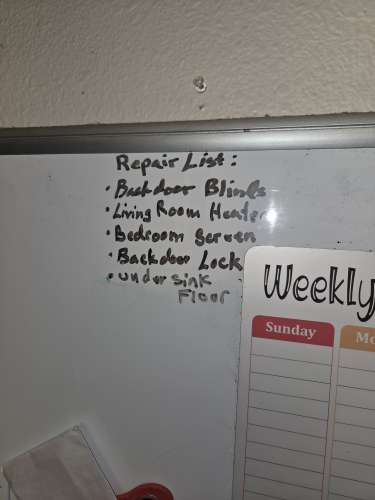 Repair List:
• Backdoor Blinds
• Living Room Heater
• Bedroom Screen
• Backdoor Lock
• Under Sink
Floor
Weekly
Sunday
Mo